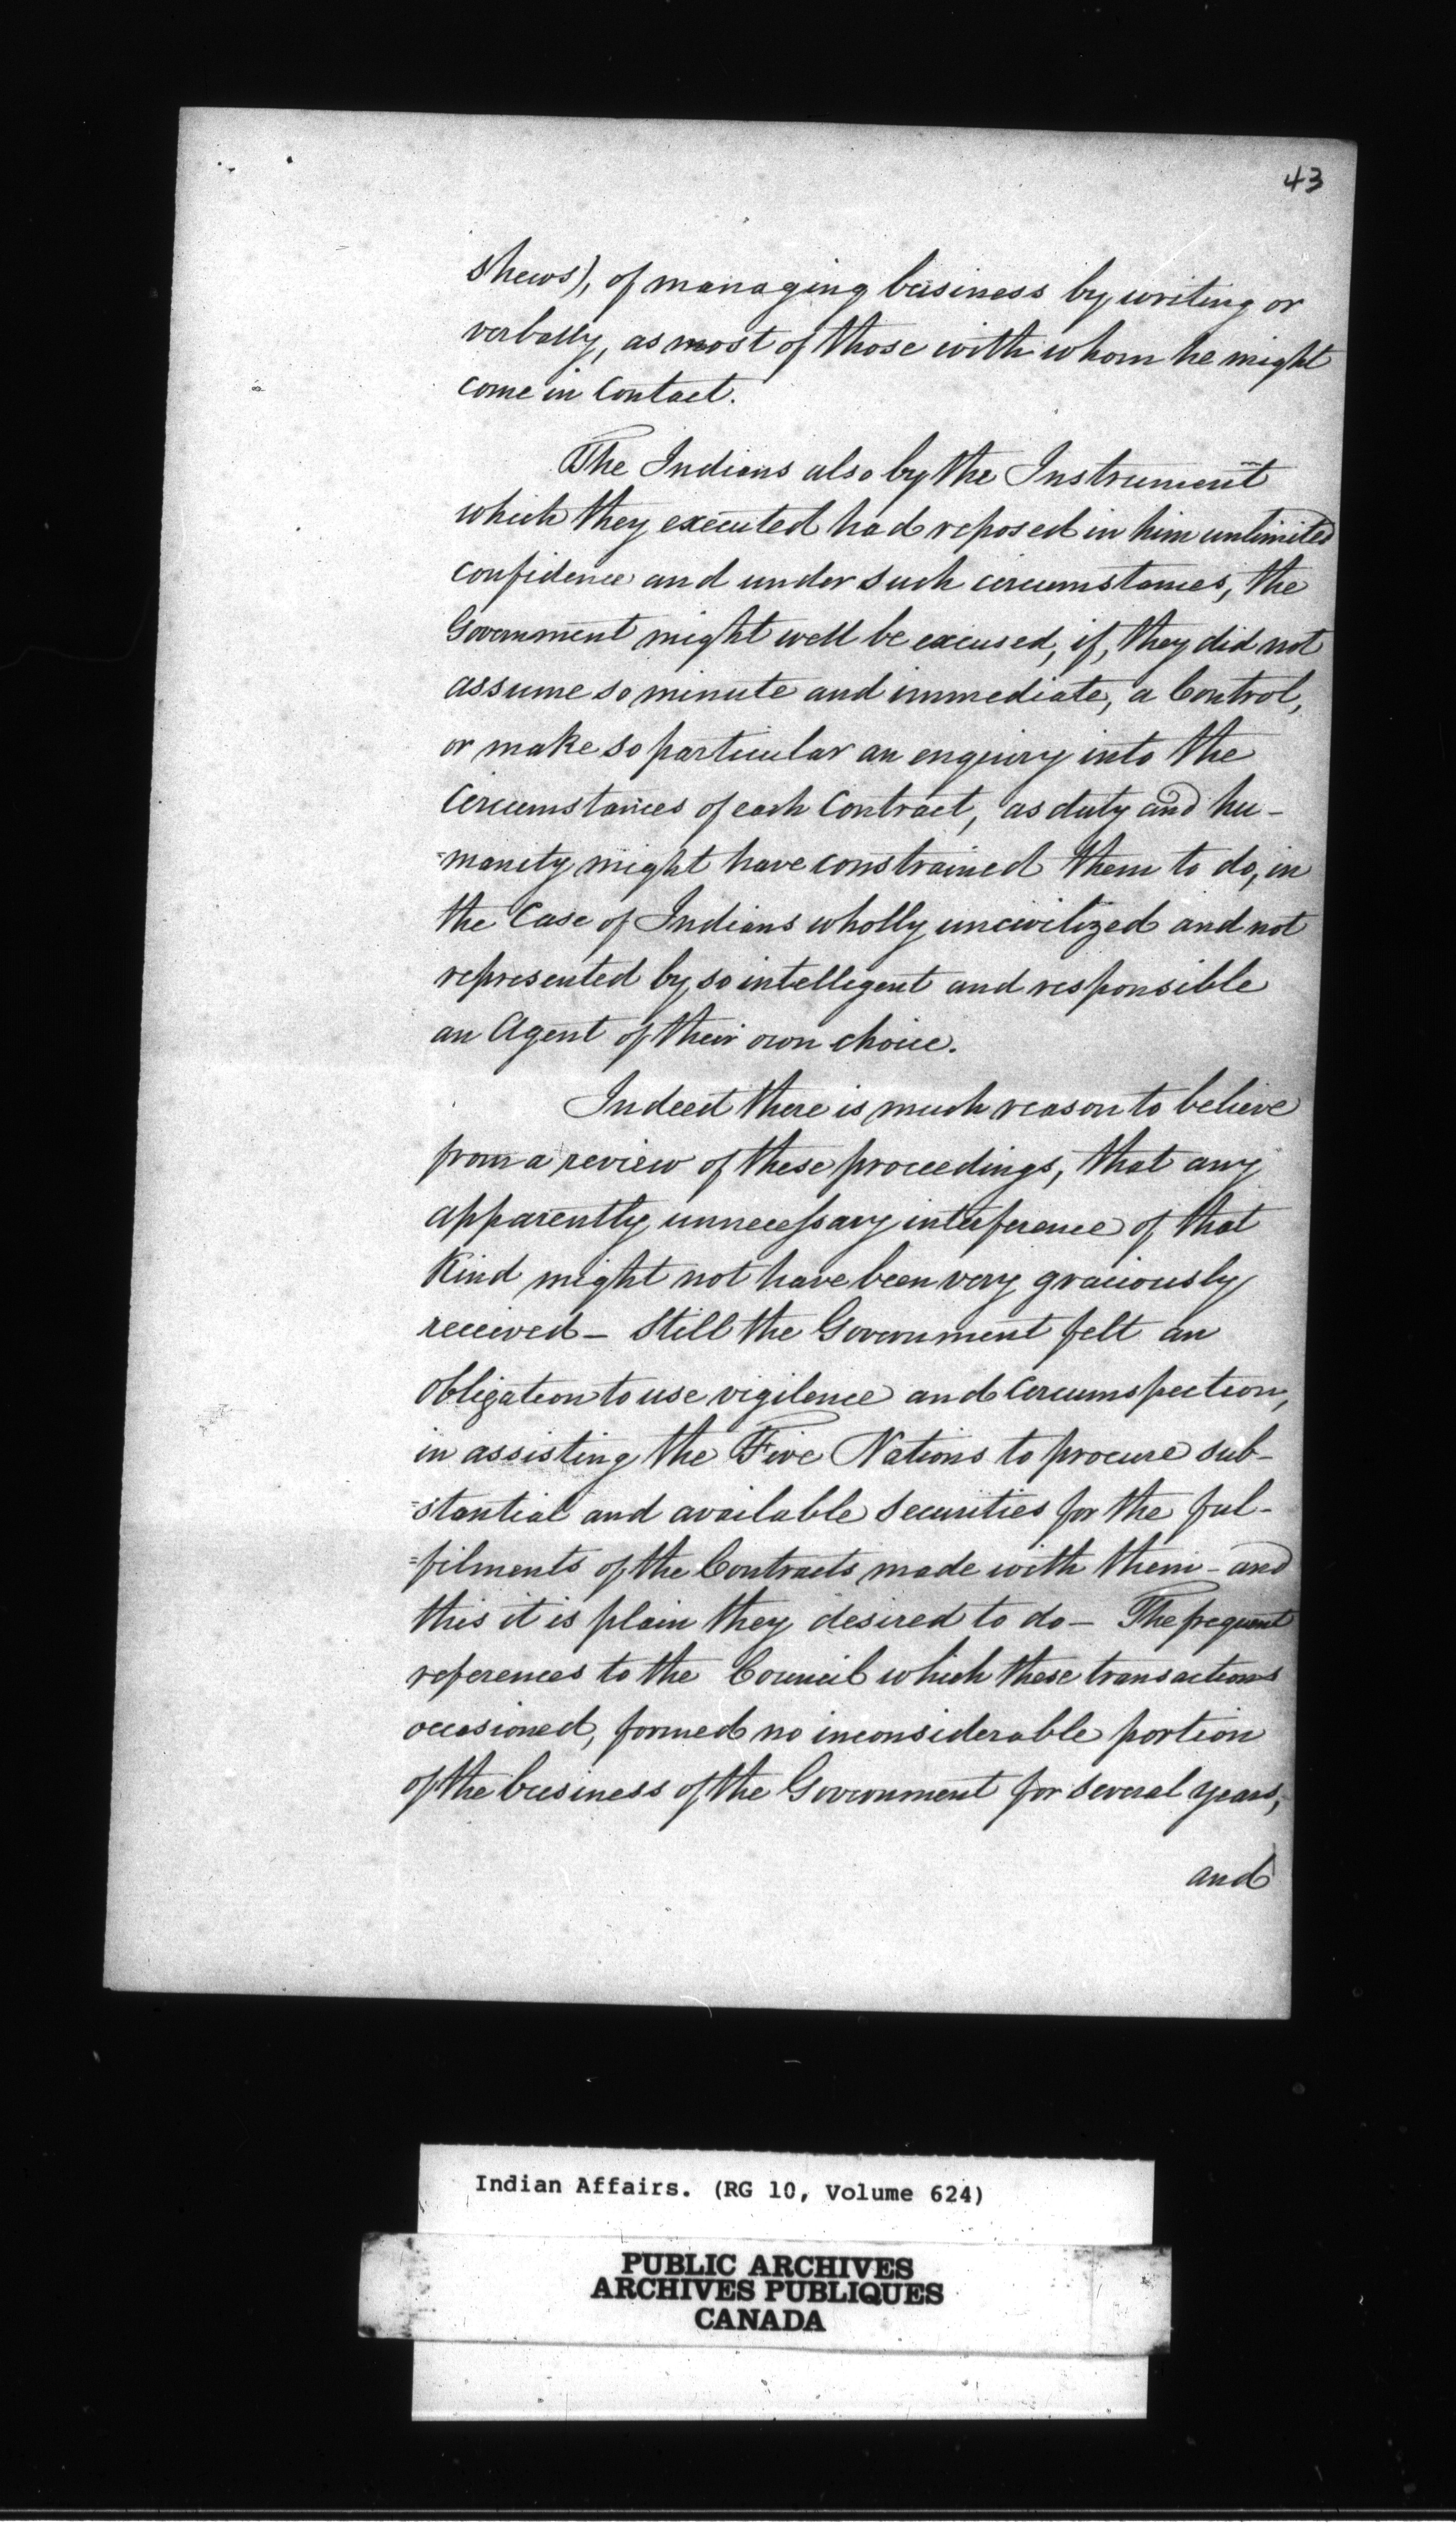 43
shews), of managing business by writing or
verbally, as most of those with whom he might
come in Contact.
The Indians also by the Instrument
which they executed had reposed in him unlimited
confidence and under such circumstances, the
Government might well be excused, if, they did not
assume so minute and immediate, a Control,
or make so particular an enquiry into the
Circumstances of each Contract, as duty and hu-
=manity might have constrained them to do, in
the Case of Indians wholly uncivilized and not
represented by so intelligent and responsible
an Agent of their own choice.
Indeed there is much reason to believe
from a review of these proceedings, that any
apparently unnecessary interference of that
Kind might not have been very graciously
received - Still the Government felt an
obligation to use vigilence and Circumspection,
in assisting the Five Nations to procure sub-
=stantial and available Securities for the ful-
=filments of the Contracts made with them - and
this it is plain they desired to do - The frequent
references to the Council which these transactions
occasioned, formed no inconsiderable portion
of the business of the Government for several years,
and
Indian Affairs. (RG 10, Volume 624)
PUBLIC ARCHIVES
ARCHIVES PUBLIQUES
CANADA